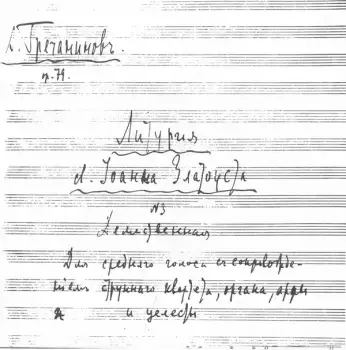 А. Гречаниновъ.
ор. 79.
Литургия
св. Іоанна Златоуста
№3
Демественная
Для среднего голоса съ сопровожде-
ніемъ струннаго квартета, органа, арфы
и челесты